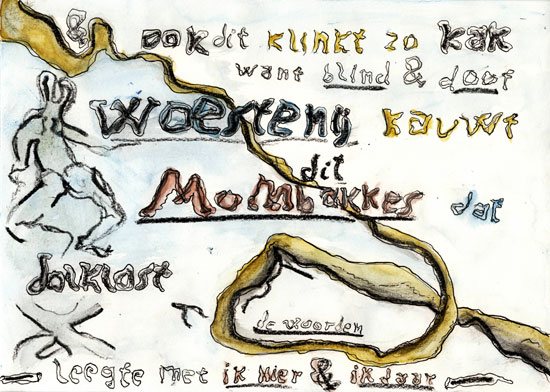 & ook dit klinkt zo kak
want blind & doof
woestenij kauwt
dit
Mombakkes dat
de woorden
leegte met ik hier & ik daar